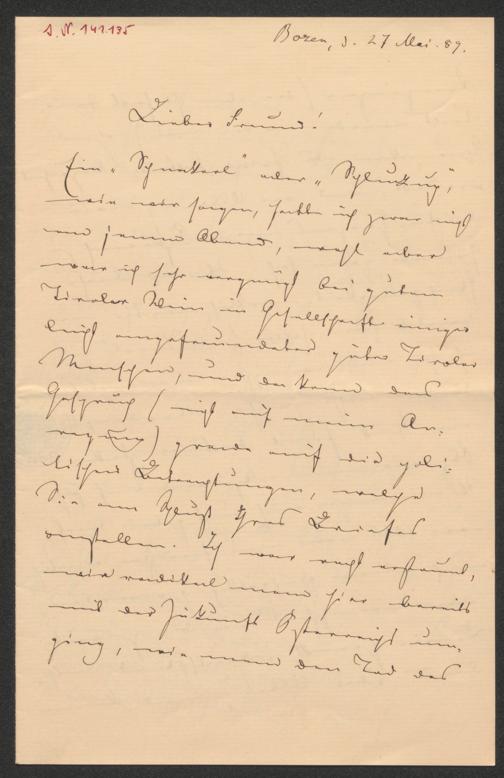 S. N. 141.135
Bozen, d. 27 Mai. 89.
Lieber Freund!
Ein „Schnakerl“ oder „Schluckug“,
wie wir sagen, hatte ich zwar nicht
an jenem Abend, wohl aber
war ich sehr vergnügt bei gutem
Tiroler Wein in Gesellschaft einiger
leicht angefreundeter guter Tiroler
Menschen, und da kam das
Gespräch (nicht auf meine An-
regung) grade auf die poli-
tischen Betrachtungen, welche
Sie am Schluß Ihres Briefes
anstellen. Ich war recht erstaunt,
wie radikal man hier bereits
mit der Zukunft Österreichs um-
ging, wie man den Tod des